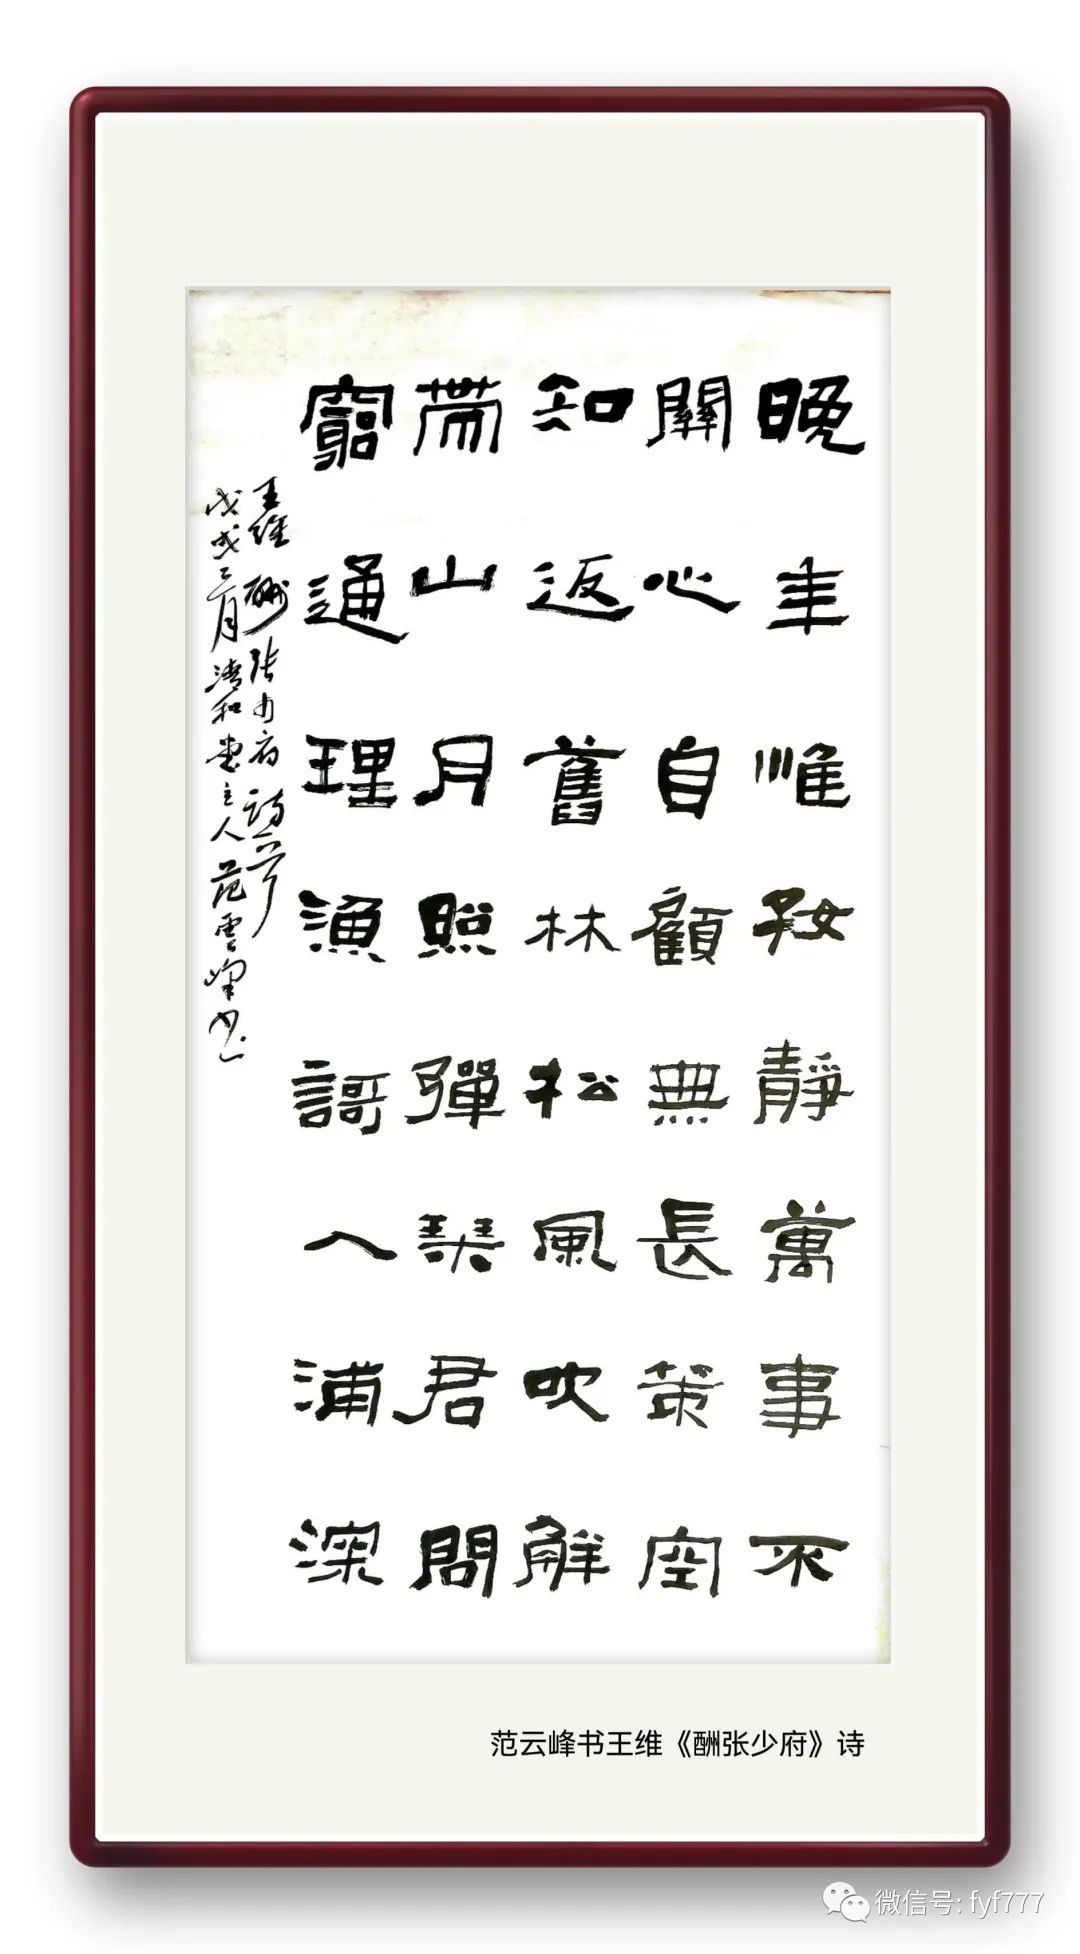 晚年惟好靜萬事不
關心自顧無長策空
知返舊林松風吹解
帶山月照彈琴君問
窮通理漁謌入浦深
王维酬张少府詩一首
戊戌三月清和堂主人范雲峰书
范云峰书王维《酬张少府》诗
微信号: fyf777